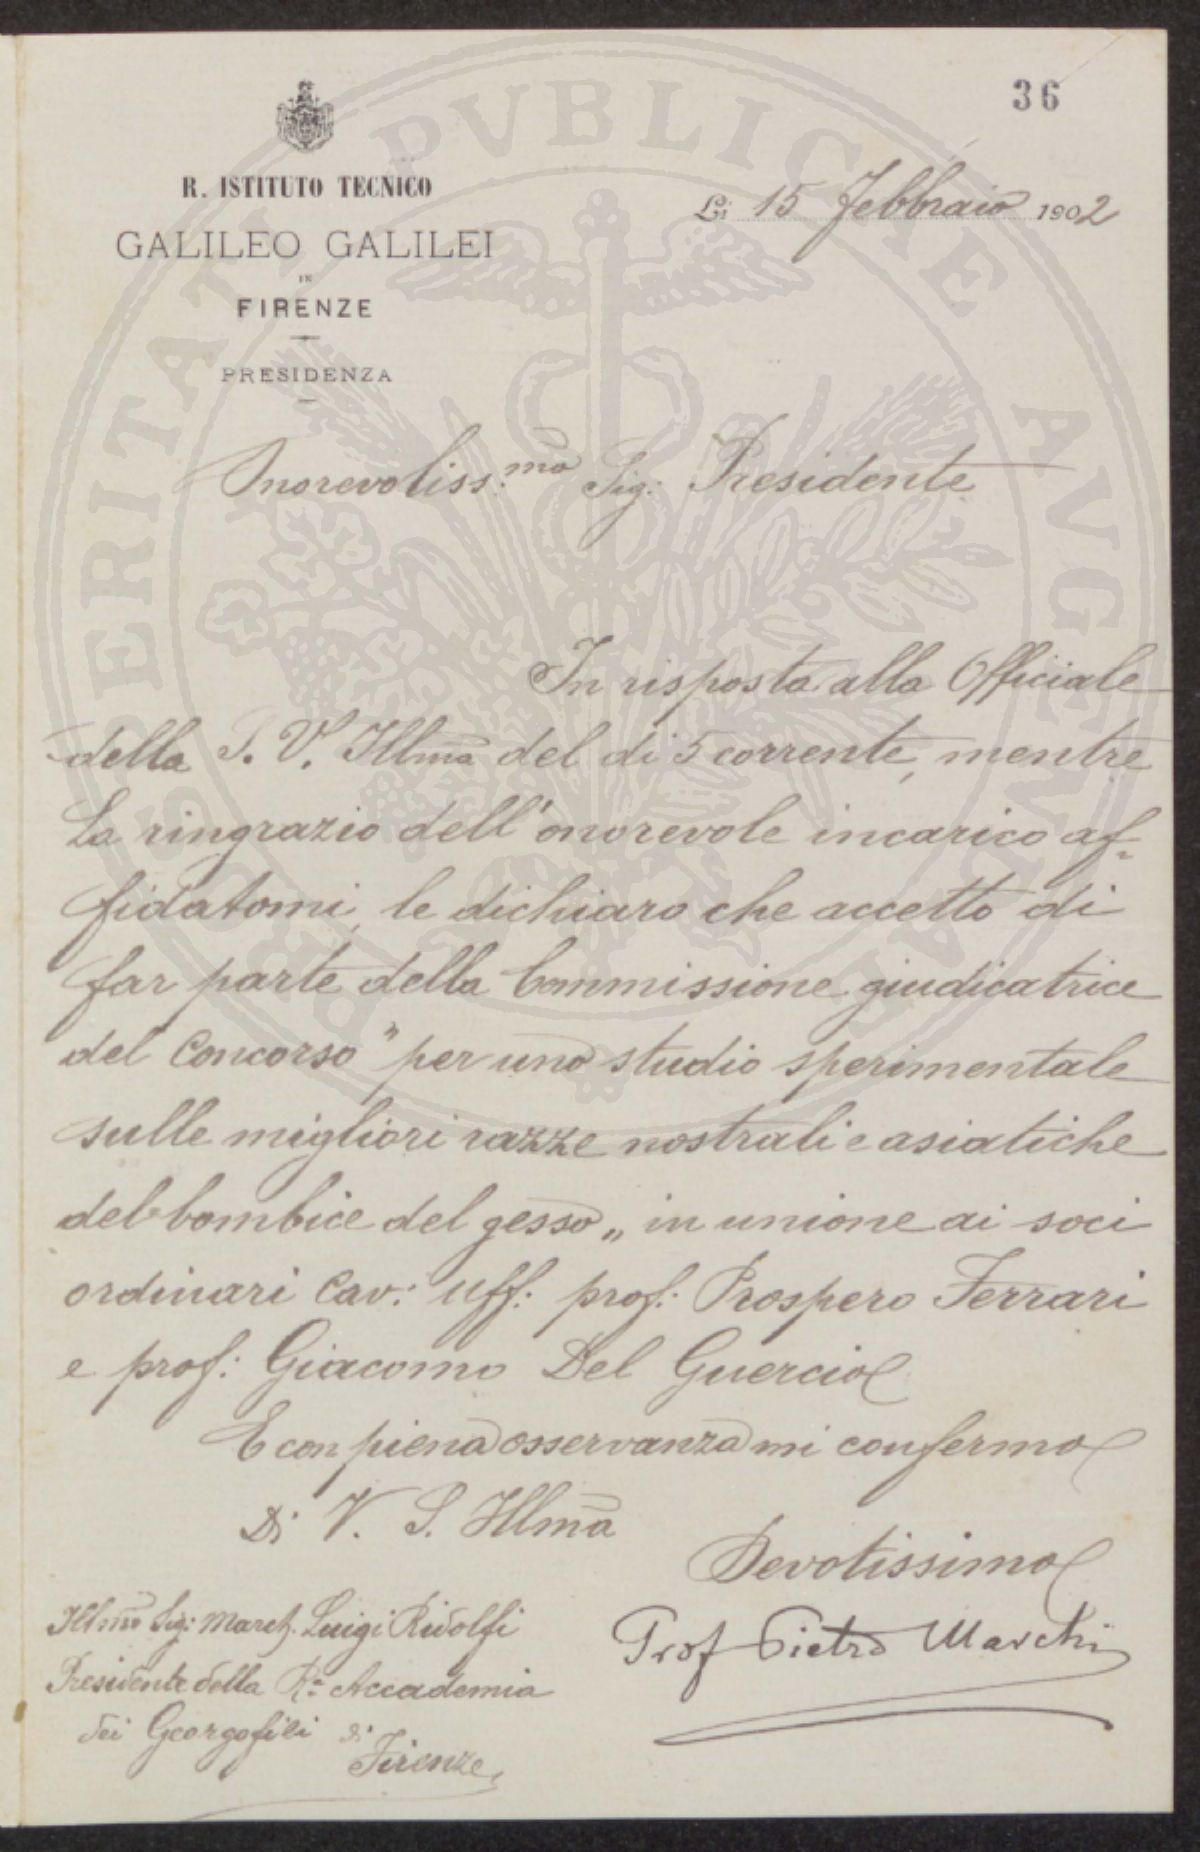 36
R. ISTITUTO TECNICO
GALILEO GALILEI
IN
FIRENZE
PRESIDENZA
Li 15 Febbraio 1902
Onorevoliss:mo Sig: Presidente
In risposta alla Officiale
della S. V. Illma del di 5 corrente, mentre
La ringrazio dell'onorevole incarico af-
fidatomi, le dichiaro che accetto di
far parte della Commissione giudicatrice
del Concorso "per uno studio sperimentale
sulle migliori razze nostrali e asiatiche
del bombice del gesso„ in unione ai soci
ordinari Cav: Uff: prof: Prospero Ferrari
e prof: Giacomo Del Guercio
E con piena osservanza mi confermo
Di V. S. Illma
Devotissimo
Prof Pietro Marchi
Illmo Sig: March. Luigi Ridolfi
Presidente della Ra Accademia
dei Georgofili di
Firenze
PROSPERITATI PVBLICAE AVGENDAE